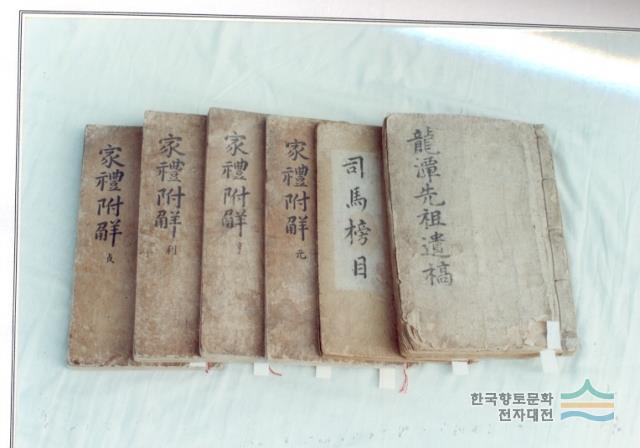 龍潭先祖遺稿
司馬榜目
家禮附觧 元
家禮附觧 亨
家禮附觧 利
家禮附觧 貞
한국향토문화
전자대전